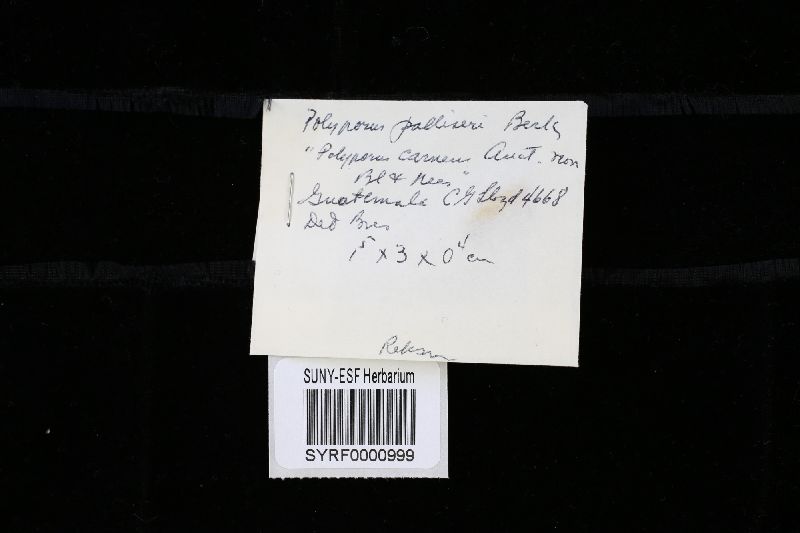 Polyporus palliseri Berk
"Polyporus carneus Auct. non
Bl & Nees"
Guatemala CG Lloyd 4668
Det Bres
1⁵ × 3 × 0⁴ cm
SUNY-ESF Herbarium
SYRF0000999